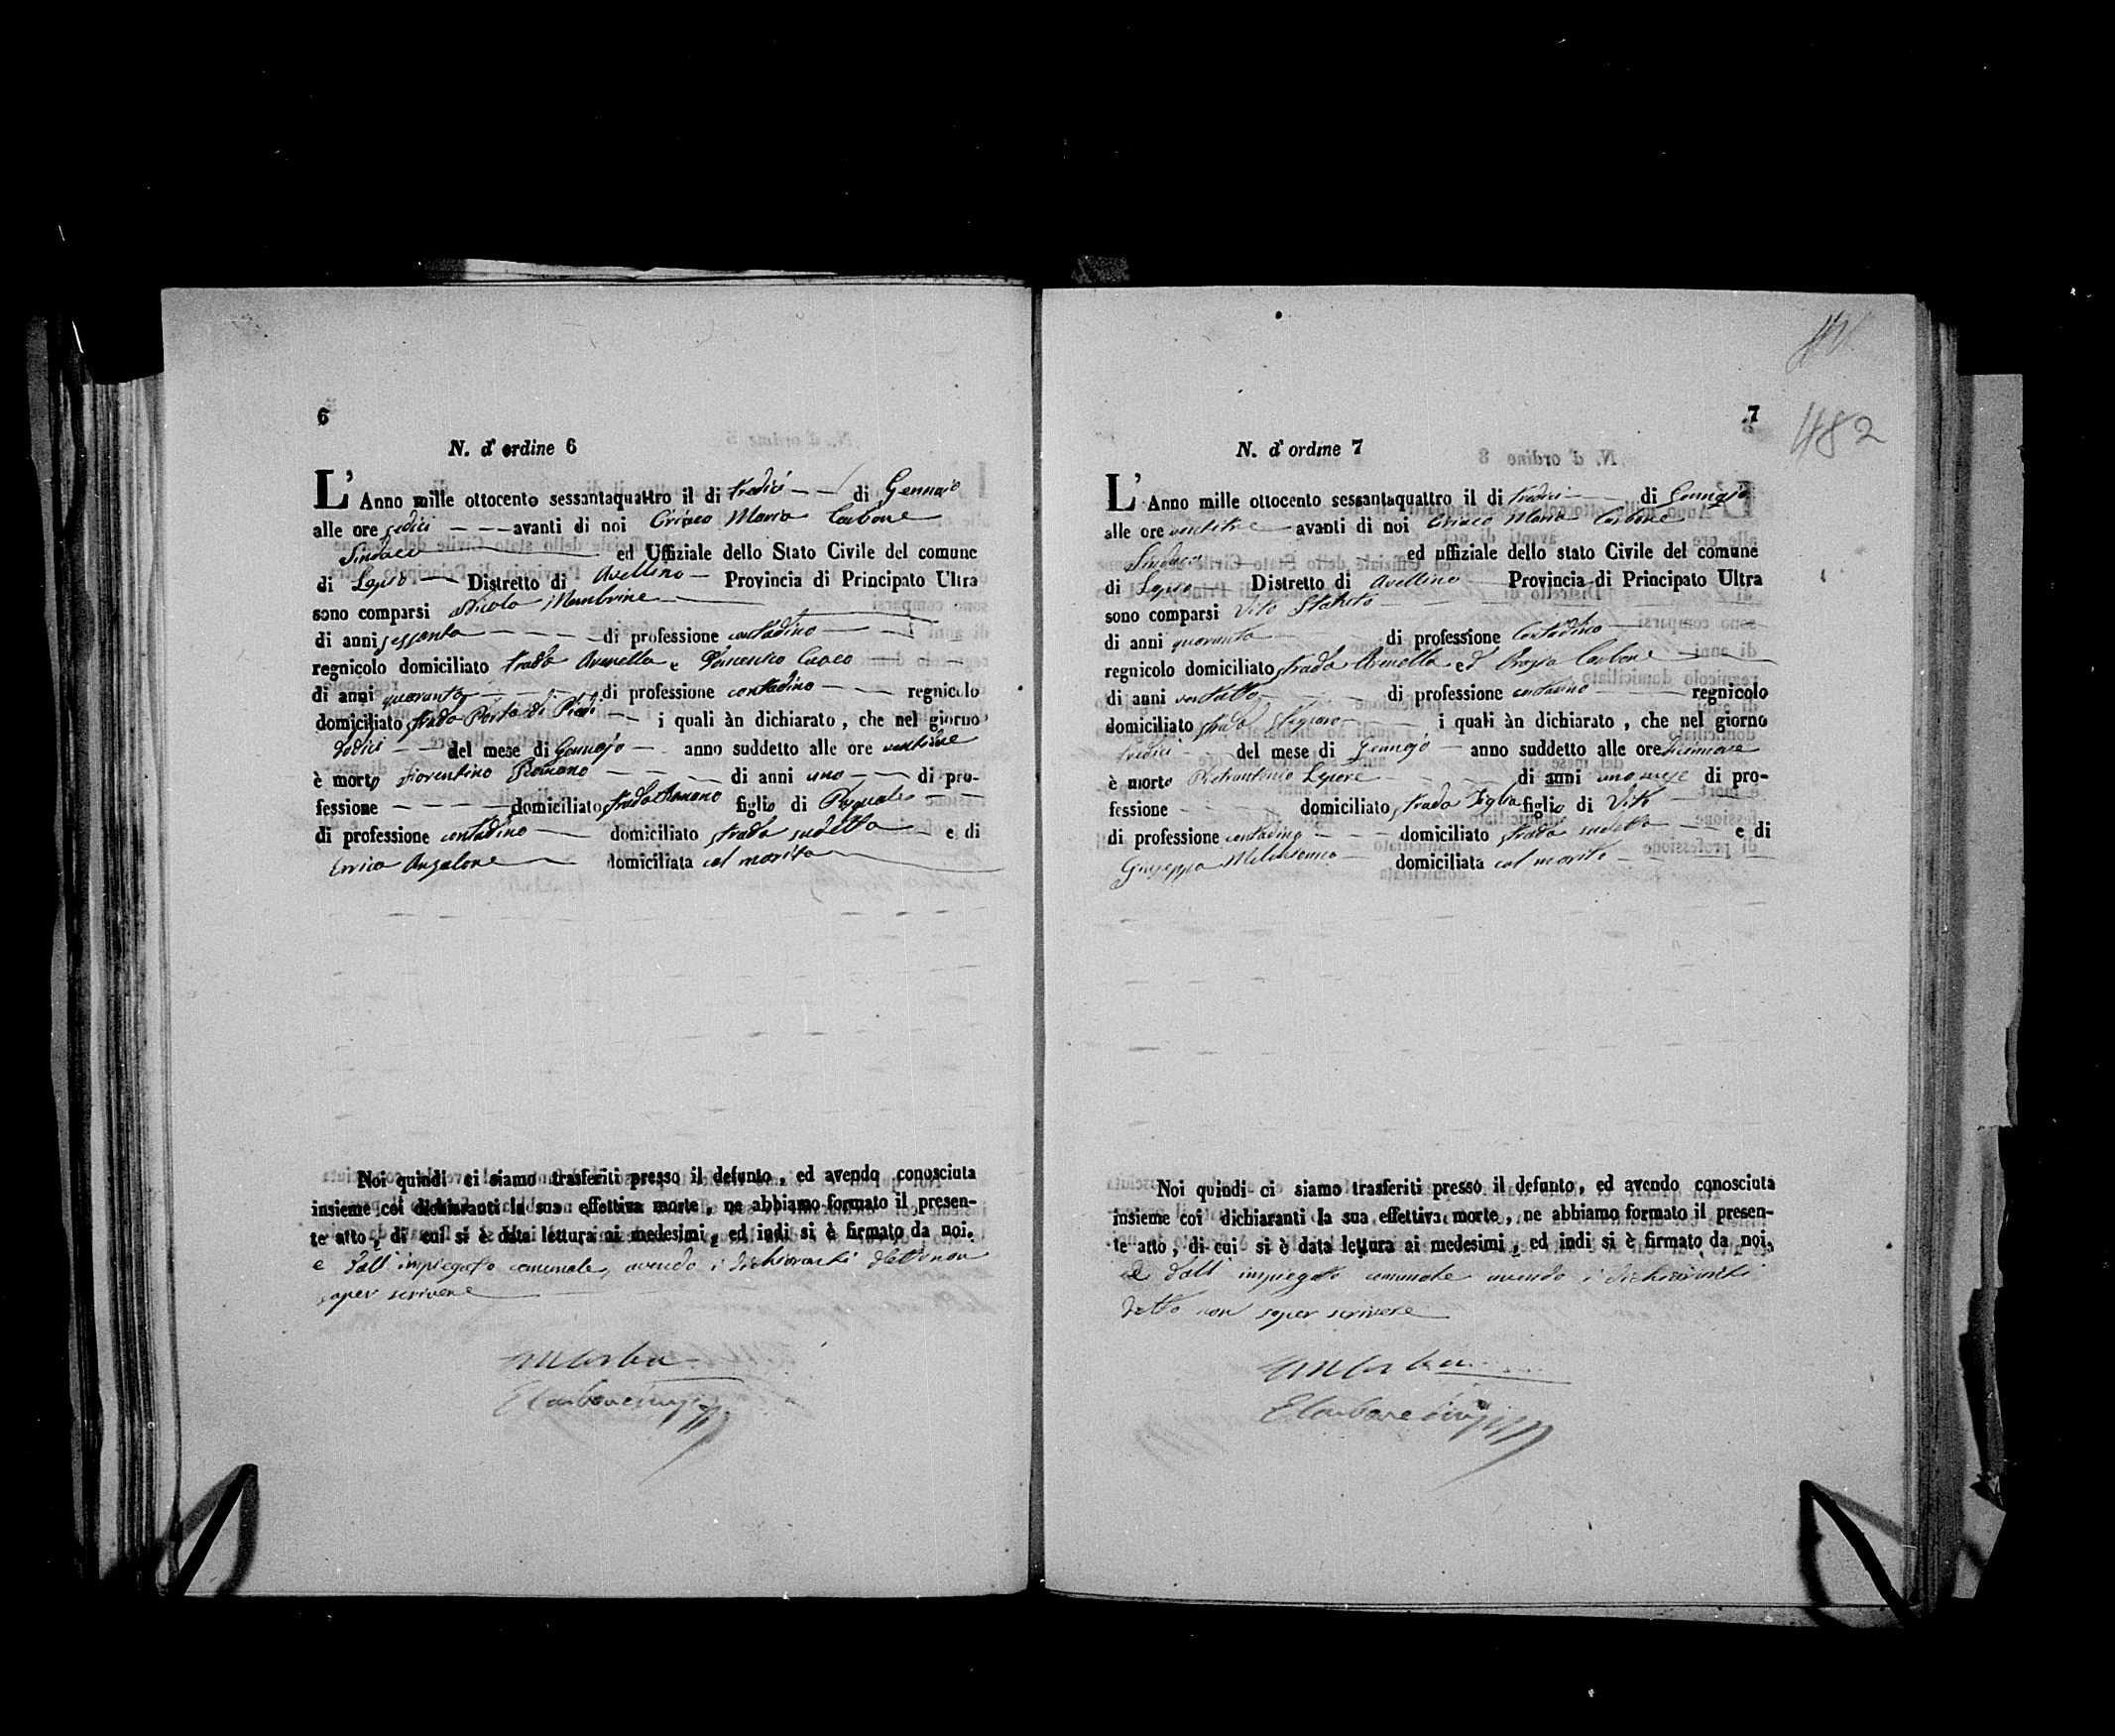 6
N. d'ordine 6
L'Anno mille ottocento sessantaquattro il di tredici di Gennajo
alle ore sedici avanti di noi Ciriaco Maria Carbone
Sindaco ed Uffiziale dello Stato Civile del comune
di Lapio Distretto di Avellino Provincia di Principato Ultra
sono comparsi Nicola
di anni sessanta di professione contadino
regnicolo domiciliato strada e
di anni quaranta di professione contadino regnicolo
domiciliato strada Porta di i quali àn dichiarato, che nel giorno
dodici del mese di Gennajo anno suddetto alle ore
è morto Fiorentino Romano di anni uno di pro-
fessione domiciliato strada Romano figlio di Pasquale
di professione contadino domiciliato strada sudetta e di
Errica Anzalone domiciliata col marito
Noi quindi ci siamo trasferiti presso il defunto, ed avendo conosciuta
insieme coi dichiaranti la sua effettiva morte, ne abbiamo formato il presen-
te atto, di cui si è data lettura ai medesimi, ed indi si è firmato da noi.
e dall'impiegato comunale, avendo i dichiaranti detto non
saper scrivere
7
482
N. d'ordine 7
L'Anno mille ottocento sessantaquattro il di tredici di Gennajo
alle ore avanti di noi Ciriaco Maria Carbone
Sindaco ed uffiziale dello stato Civile del comune
di Lapio Distretto di Avellino Provincia di Principato Ultra
sono comparsi Vito
di anni quaranta di professione Contadino
regnicolo domiciliato strada ed Carbone
di anni di professione contadino regnicolo
domiciliato strada i quali àn dichiarato, che nel giorno
tredici del mese di Gennajo anno suddetto alle ore
è morto Pietrantonio Lepore di anni uno mese di pro-
fessione domiciliato strada figlio di Vito
di professione contadino domiciliato strada sudetta e di
Giuseppa domiciliata col marito
Noi quindi ci siamo trasferiti presso il defunto, ed avendo conosciuta
insieme coi dichiaranti la sua effettiva morte, ne abbiamo formato il presen-
te atto, di cui si è data lettura ai medesimi, ed indi si è firmato da noi.
e dall'impiegato comunale avendo i dichiaranti
detto non saper scrivere